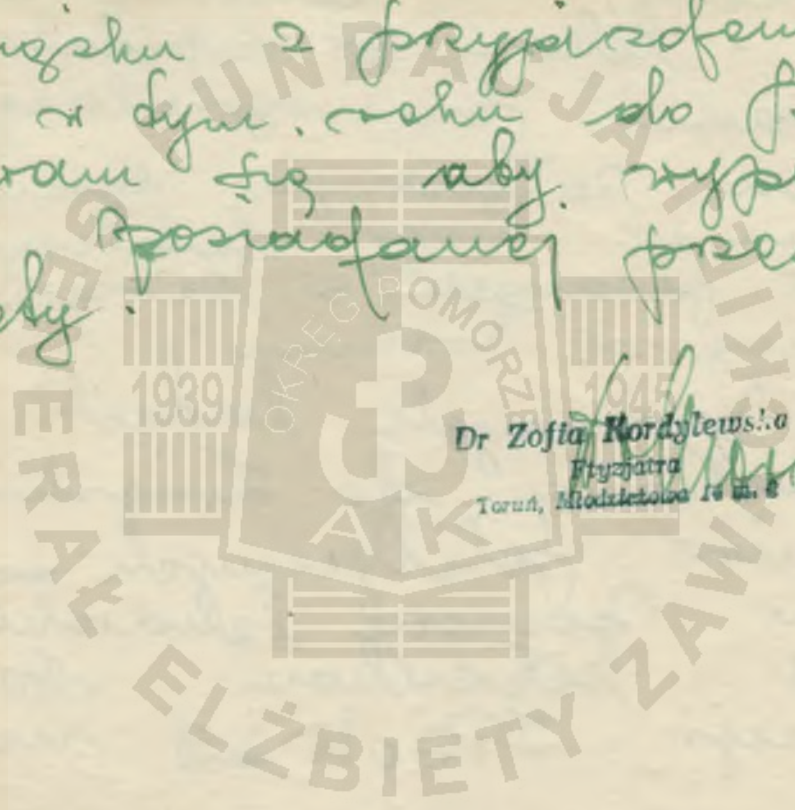 iązku z przyjazdem
w tym roku do
ram się aby wyp
z posiadanej prze
ety.
Dr Zofia Kordylewska
Ftyzjatra
Toruń, Młodzieżowa m. 8
FUNDACJA
GENERAŁ ELŻBIETY ZAWACKIE
OKRĘG POMORZE
1939
1945
AK